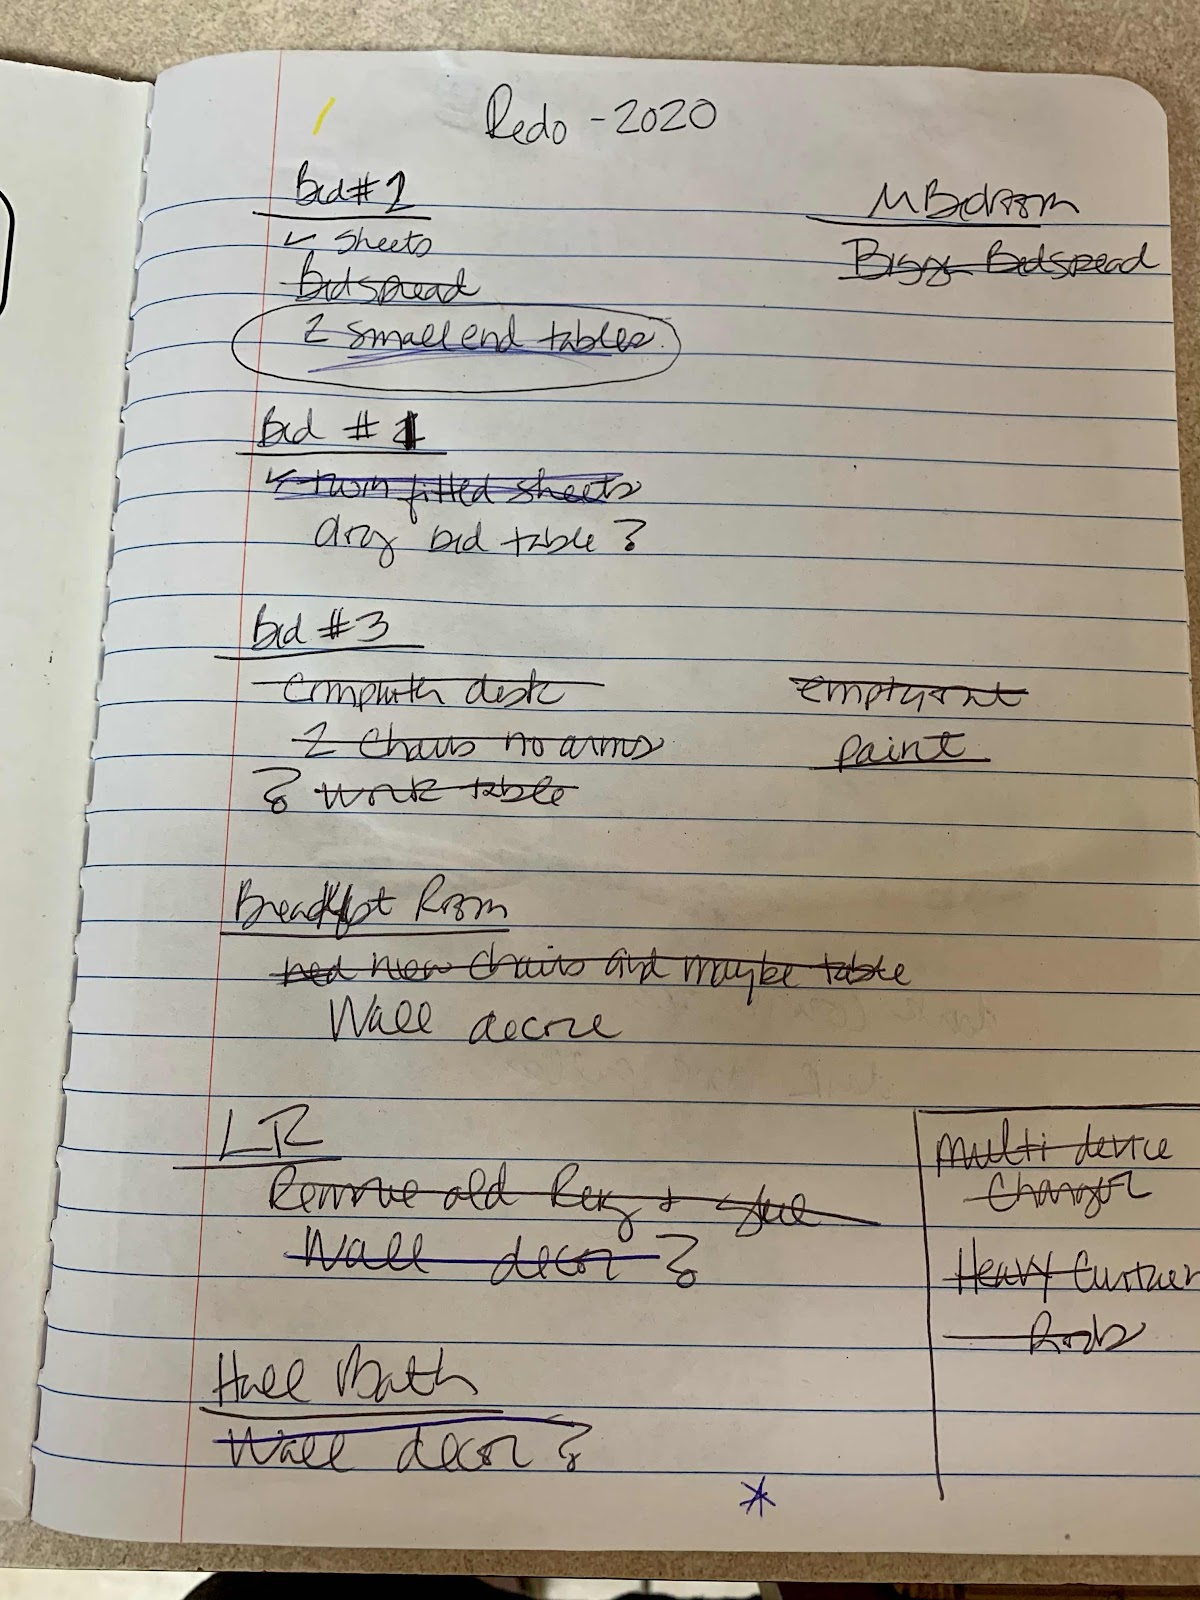 Redo - 2020
Bed # 2
✓ sheets
bedspread
2 small end tables
M Bedroom
Bedspread
Bed # 1
✓ twin fitted sheets
bed table ?
Bed # 3
Computer desk
2 chairs no arms
? work table
empty out
paint
Breakfast Room
need new chairs and maybe table
Wall decore
LR
Remove old Rug + glue
Wall decor ?
multi device
Charger
Heavy Curtain
Rods
Hall Bath
Wall decor ?